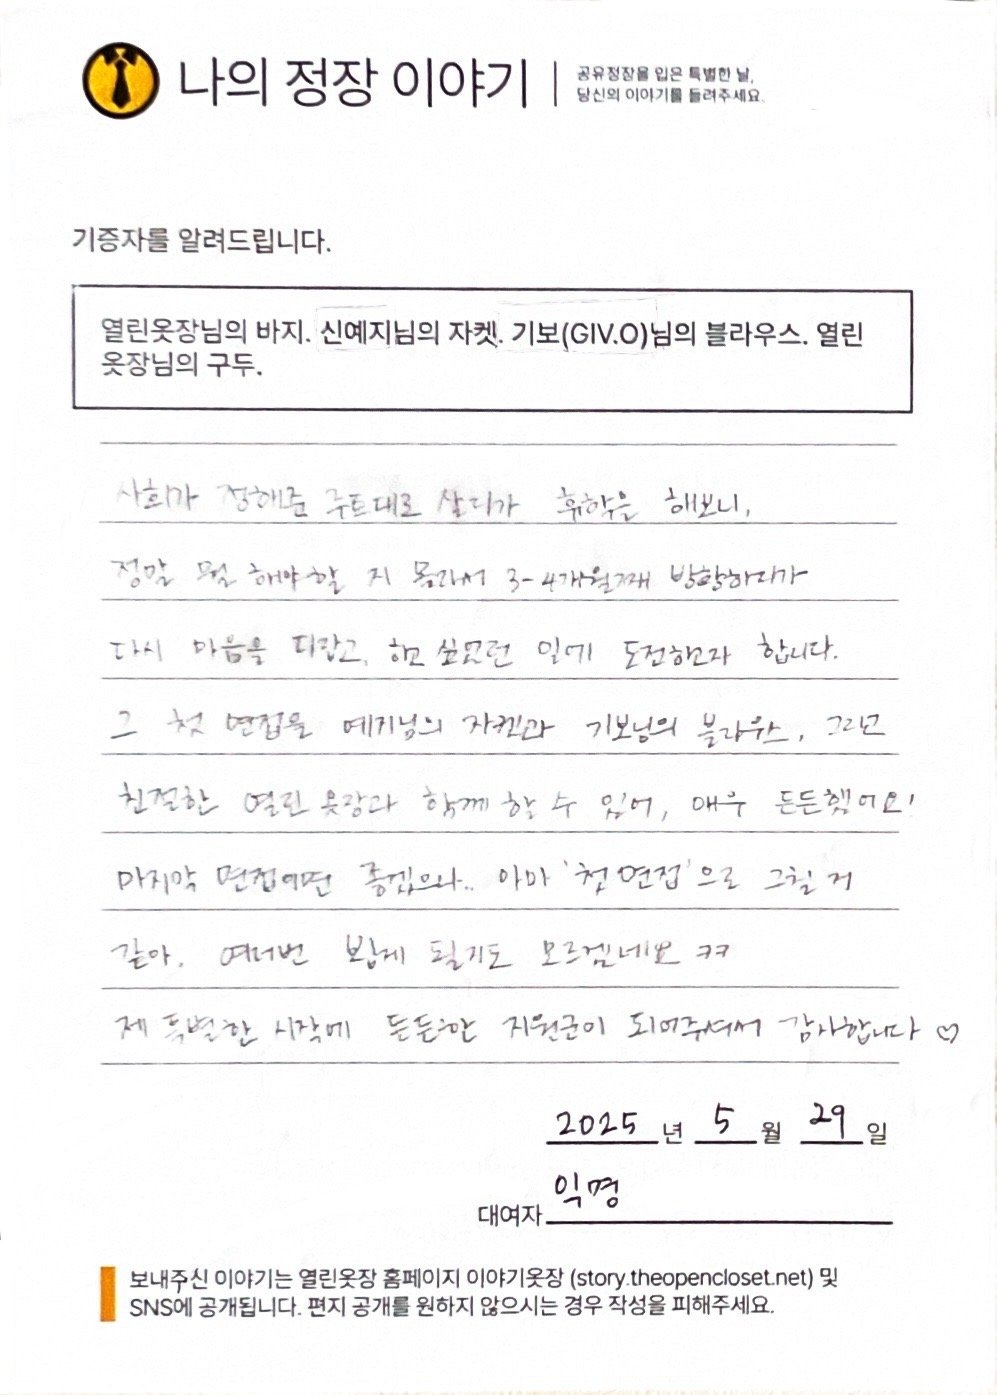 나의 정장 이야기
공유정장을 입은 특별한 날,
당신의 이야기를 들려주세요.
기증자를 알려드립니다.
열린옷장님의 바지. 신예지님의 자켓. 기보(GIV.O)님의 블라우스. 열린
옷장님의 구두.
사회가 정해준 루트대로 살다가 휴학을 해보니,
정말 뭘 해야할 지 몰라서 3-4개월째 방황하다가
다시 마음을 다잡고, 하고 싶었던 일에 도전하고자 합니다.
그 첫 면접을 예지님의 자켓과 기보님의 블라우스, 그리고
친절한 열린 옷장과 함께 할 수 있어, 매우 든든했어요!
마지막 면접이면 좋겠으나.. 아마 '첫 면접'으로 그칠 거
같아, 여러번 뵙게 될지도 모르겠네요 ㅋㅋ
제 특별한 시작에 든든한 지원군이 되어주셔서 감사합니다 ♡
2025 년 5 월 29 일
대여자 익명
보내주신 이야기는 열린옷장 홈페이지 이야기옷장 (story.theopencloset.net) 및
SNS에 공개됩니다. 편지 공개를 원하지 않으시는 경우 작성을 피해주세요.